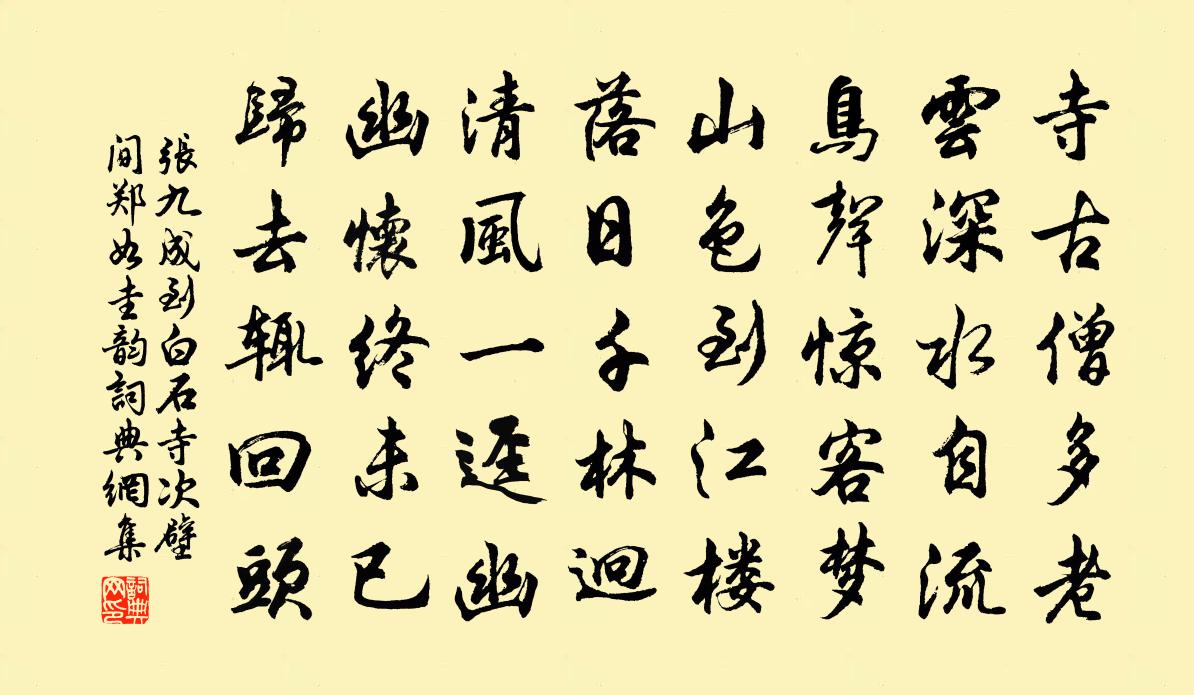 寺古僧多老
雲深水自流
鳥聲惊客梦
山色到江楼
落日千林迥
清風一逕幽
幽懷终未已
歸去辄回頭
張九成到白石寺次壁
间郑如圭韵詞典網集
詞典網印